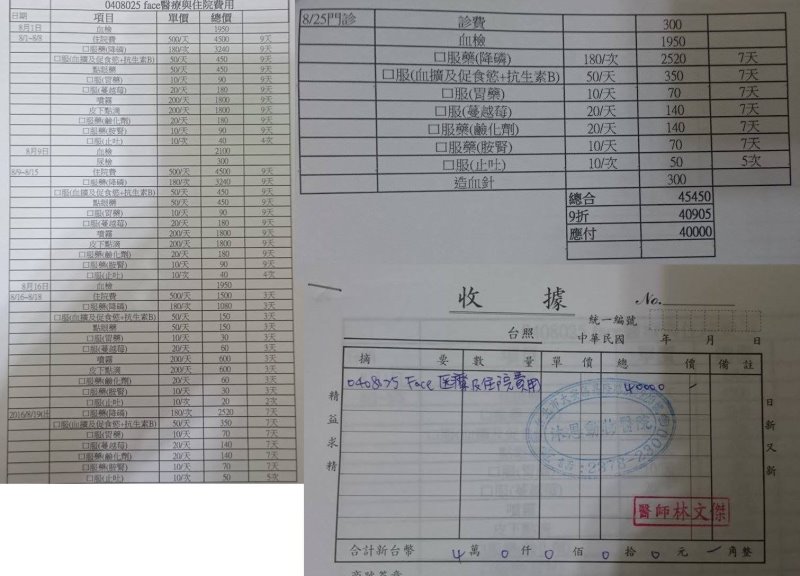 0408025 face醫療與住院費用
日期 項目 單價 總價
8月1日 血檢 1950
8/1~8/8 住院費 500/天 4500 9天
口服藥(降磷) 180/次 3240 9天
口服(血擴及促食慾+抗生素B) 50/天 450 9天
點眼藥 50/天 450 9天
口服(胃藥) 10/天 90 9天
口服(蔓越莓) 20/天 180 9天
噴霧 200/天 1800 9天
皮下點滴 200/天 1800 9天
口服藥(鹼化劑) 20/天 180 9天
口服藥(胺腎) 10/天 90 9天
口服(止吐) 10/次 40 4次
8月9日 血檢 2100
尿檢 300
8/9~8/15 住院費 500/天 4500 9天
口服藥(降磷) 180/次 3240 9天
口服(血擴及促食慾+抗生素B) 50/天 450 9天
點眼藥 50/天 450 9天
口服(胃藥) 10/天 90 9天
口服(蔓越莓) 20/天 180 9天
噴霧 200/天 1800 9天
皮下點滴 200/天 1800 9天
口服藥(鹼化劑) 20/天 180 9天
口服藥(胺腎) 10/天 90 9天
口服(止吐) 10/次 40 4次
8月16日 血檢 1950
8/16~8/18 住院費 500/天 1500 3天
口服藥(降磷) 180/次 1080 3天
口服(血擴及促食慾+抗生素B) 50/天 150 3天
點眼藥 50/天 150 3天
口服(胃藥) 10/天 30 3天
口服(蔓越莓) 20/天 60 3天
噴霧 200/天 600 3天
皮下點滴 200/天 600 3天
口服藥(鹼化劑) 20/天 60 3天
口服藥(胺腎) 10/天 30 3天
口服(止吐) 10/次 20 2次
2016/8/19 口服藥(降磷) 180/次 2520 7天
口服(血擴及促食慾+抗生素B) 50/天 350 7天
口服(胃藥) 10/天 70 7天
口服(蔓越莓) 20/天 140 7天
口服藥(鹼化劑) 20/天 140 7天
口服藥(胺腎) 10/天 70 7天
口服(止吐) 10/次 50 5次
8/25門診 診費 300
血檢 1950
口服藥(降磷) 180/次 2520 7天
口服(血擴及促食慾+抗生素B) 50/天 350 7天
口服(胃藥) 10/天 70 7天
口服(蔓越莓) 20/天 140 7天
口服藥(鹼化劑) 20/天 140 7天
口服藥(胺腎) 10/天 70 7天
口服(止吐) 10/次 50 5次
造血針 300
總合 45450
9折 40905
應付 40000
收據 No.
統一編號
台照 中華民國 年 月 日
摘要 數量 單價 總價 備註
040825 Face 医療及住院費用 40000
沐恩動物醫院
電話:2978-2300
精益求精
日新又新
醫師林文傑
合計新台幣 4 萬 0 仟 0 佰 0 拾 0 元 角整